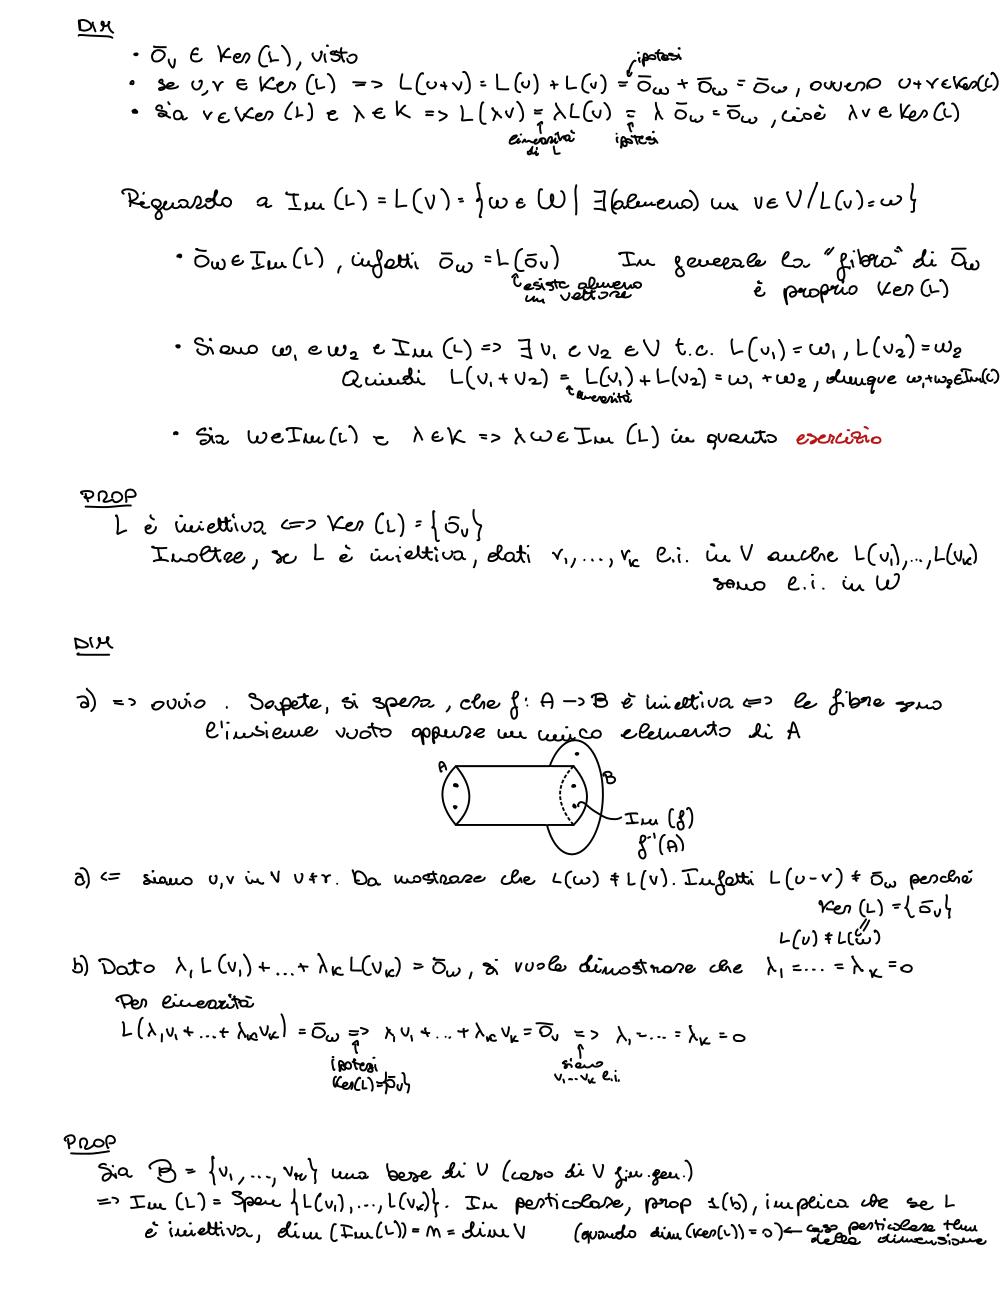 DIM
• ō_v ∈ Ker(L), visto
ipotesi
• se u,v ∈ Ker(L) => L(u+v) = L(u) + L(v) = ō_w + ō_w = ō_w, ovvero u+v∈Ker(L)
• Sia v∈Ker(L) e λ∈K => L(λv) = λL(v) = λ ō_w = ō_w, cioè λv∈Ker(L)
linearità di L
ipotesi
Riguardo a Im(L) = L(V) = {w∈W | ∃(almeno) un v∈V / L(v)=w}
• ō_w∈Im(L), infatti ō_w = L(ō_v) In generale la "fibra" di ō_w
esiste almeno un vettore
è proprio Ker(L)
• Siano w₁ e w₂ ∈ Im(L) => ∃ v₁ e v₂ ∈V t.c. L(v₁)=w₁, L(v₂)=w₂
Quindi L(v₁+v₂) = L(v₁)+L(v₂) = w₁+w₂, dunque w₁+w₂∈Im(L)
linearità
• Sia w∈Im(L) e λ∈K => λw∈Im(L) in quanto esercizio
PROP
L è iniettiva <=> Ker(L) = {ō_v}
Inoltre, se L è iniettiva, dati v₁,...,v_k l.i. in V anche L(v₁),...,L(v_k)
sono l.i. in W
DIM
a) => ovvio. Sapete, si spera, che f: A→B è iniettiva <=> le fibre sono
l'insieme vuoto oppure un unico elemento di A
A
B
Im(f)
f⁻¹(A)
a) <= siano u,v in V u≠v. Da mostrare che L(u) ≠ L(v). Infatti L(u-v) ≠ ō_w perché
Ker(L) = {ō_v}
L(u) ≠ L(w)
b) Dato λ₁L(v₁)+...+λ_kL(v_k) = ō_w, si vuole dimostrare che λ₁=...=λ_k=0
Per linearità
L(λ₁v₁+...+λ_kv_k) = ō_w => λ₁v₁+...+λ_kv_k = ō_v => λ₁=...=λ_k=0
ipotesi
Ker(L)={ō_v}
siano
v₁...v_k l.i.
PROP
Sia B = {v₁,...,v_n} una base di V (caso di V fin.gen.)
=> Im(L) = Span{L(v₁),...,L(v_k)}. In particolare, prop 1(b), implica che se L
è iniettiva, dim(Im(L)) = n = dim V (quando dim(Ker(L))=0) ← caso particolare thm
della dimensione